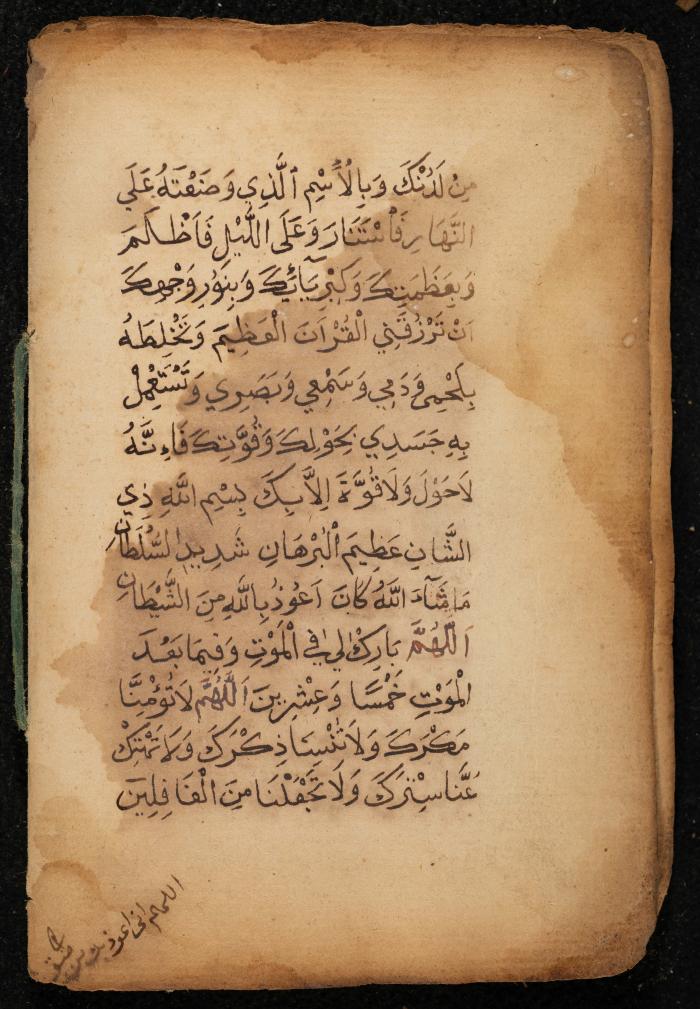 مِنْ لَدُنْكَ وَبِالْاِسْمِ الَّذِي وَضَعْتَهُ عَلَي
النَّهَارِ فَاسْتَنَارَ وَعَلَى اللَّيْلِ فَاَظْلَمَ
وَبِعَظَمَتِكَ وَكِبْرِيَآئِكَ وَبِنُورِ وَجْهِكَ
اَنْ تَرْزُقَنِي الْقُرْآنَ الْعَظِيمَ وَتُخْلِطَهُ
بِلَحْمِى وَدَمِي وَسَمْعِي وَبَصَرِي وَتَسْتَعْمِلْ
بِهِ جَسَدِي بِحَوْلِكَ وَقُوَّتِكَ فَاِنَّهُ
لَاحَوْلَ وَلَا قُوَّةَ اِلَّا بِكَ بِسْمِ اللّٰهِ ذِي
الشَّانِ عَظِيمَ الْبُرْهَانِ شَدِيدِ السُّلْطَانِ
مَا شَآءَ اللّٰهُ كَانَ اَعُوذُ بِاللّٰهِ مِنَ الشَّيْطَانِ
اَللّٰهُمَّ بَارِكْ لِي فِي الْمَوْتِ وَفِيمَا بَعْدَ
الْمَوْتِ خَمْسًا وَعِشْرِينَ اَللّٰهُمَّ لَا تُؤْمِنَّا
مَكْرَكَ وَلَا تُنْسِنَا ذِكْرَكَ وَلَا تَهْتِكْ
عَنَّا سِتْرَكَ وَلَا تَجْعَلْنَا مِنَ الْغَافِلِينَ
اللهم انى اعوذ بك من